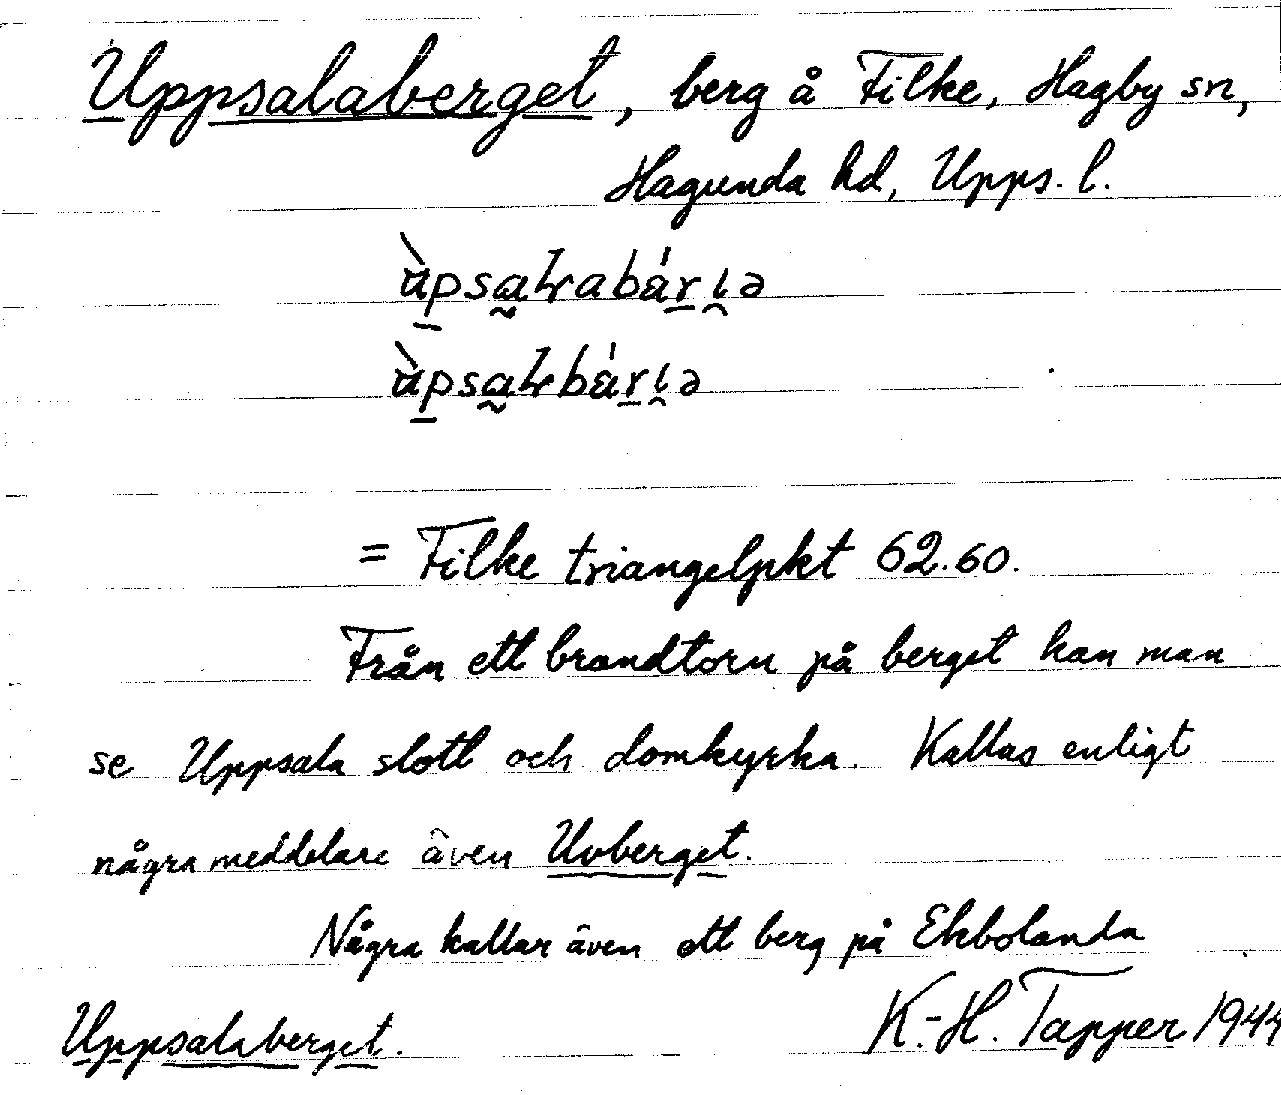 Uppsalaberget, berg å Filke, Hagby sn,
Hagunda hd, Upps. l.
= Filke triangelpkt 62.60.
Från ett brandtorn på berget kan man
se Uppsala slott och domkyrka. Kallas enligt
några meddelare även Uvberget.
Några kallar även ett berg på Ekbolanda
Uppsalaberget. K.-H. Tapper 1944